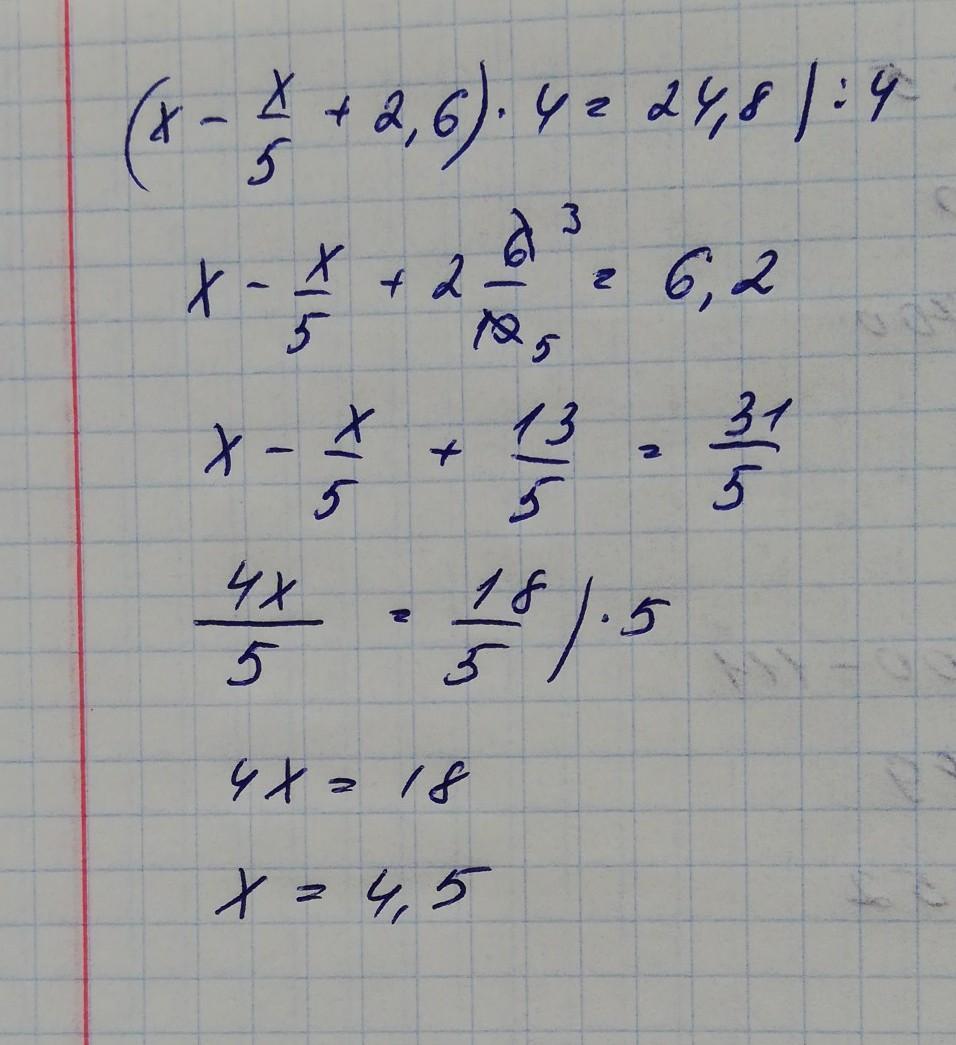 (x - x/5 + 2,6) · 4 = 24,8 | : 4
x - x/5 + 2 6/10 3/5 = 6,2
x - x/5 + 13/5 = 31/5
4x/5 = 18/5 | · 5
4x = 18
x = 4,5